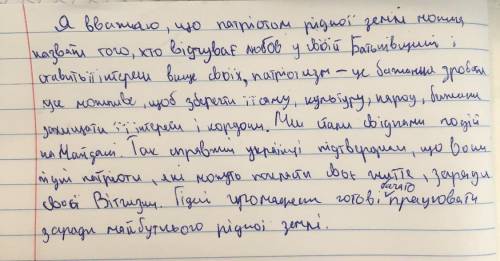 Я вважаю, що патріотом рідної землі можна
назвати того, хто відчуває любов у своїй Батьківщині і
ставить її інтереси вище своїх, патріотизм – це бажання зробити
усе можливе, щоб зберегти її саму, культуру, народ, бажання
захищати її інтереси і кордони. Ми стали свідками подій
на Майдані. Так справжні українці підтвердили, що вони
гідні патріоти, які можуть покласти своє життя, заради
своєї Вітчизни. Гідні громадяни готові багато працювати
заради майбутнього рідної землі.